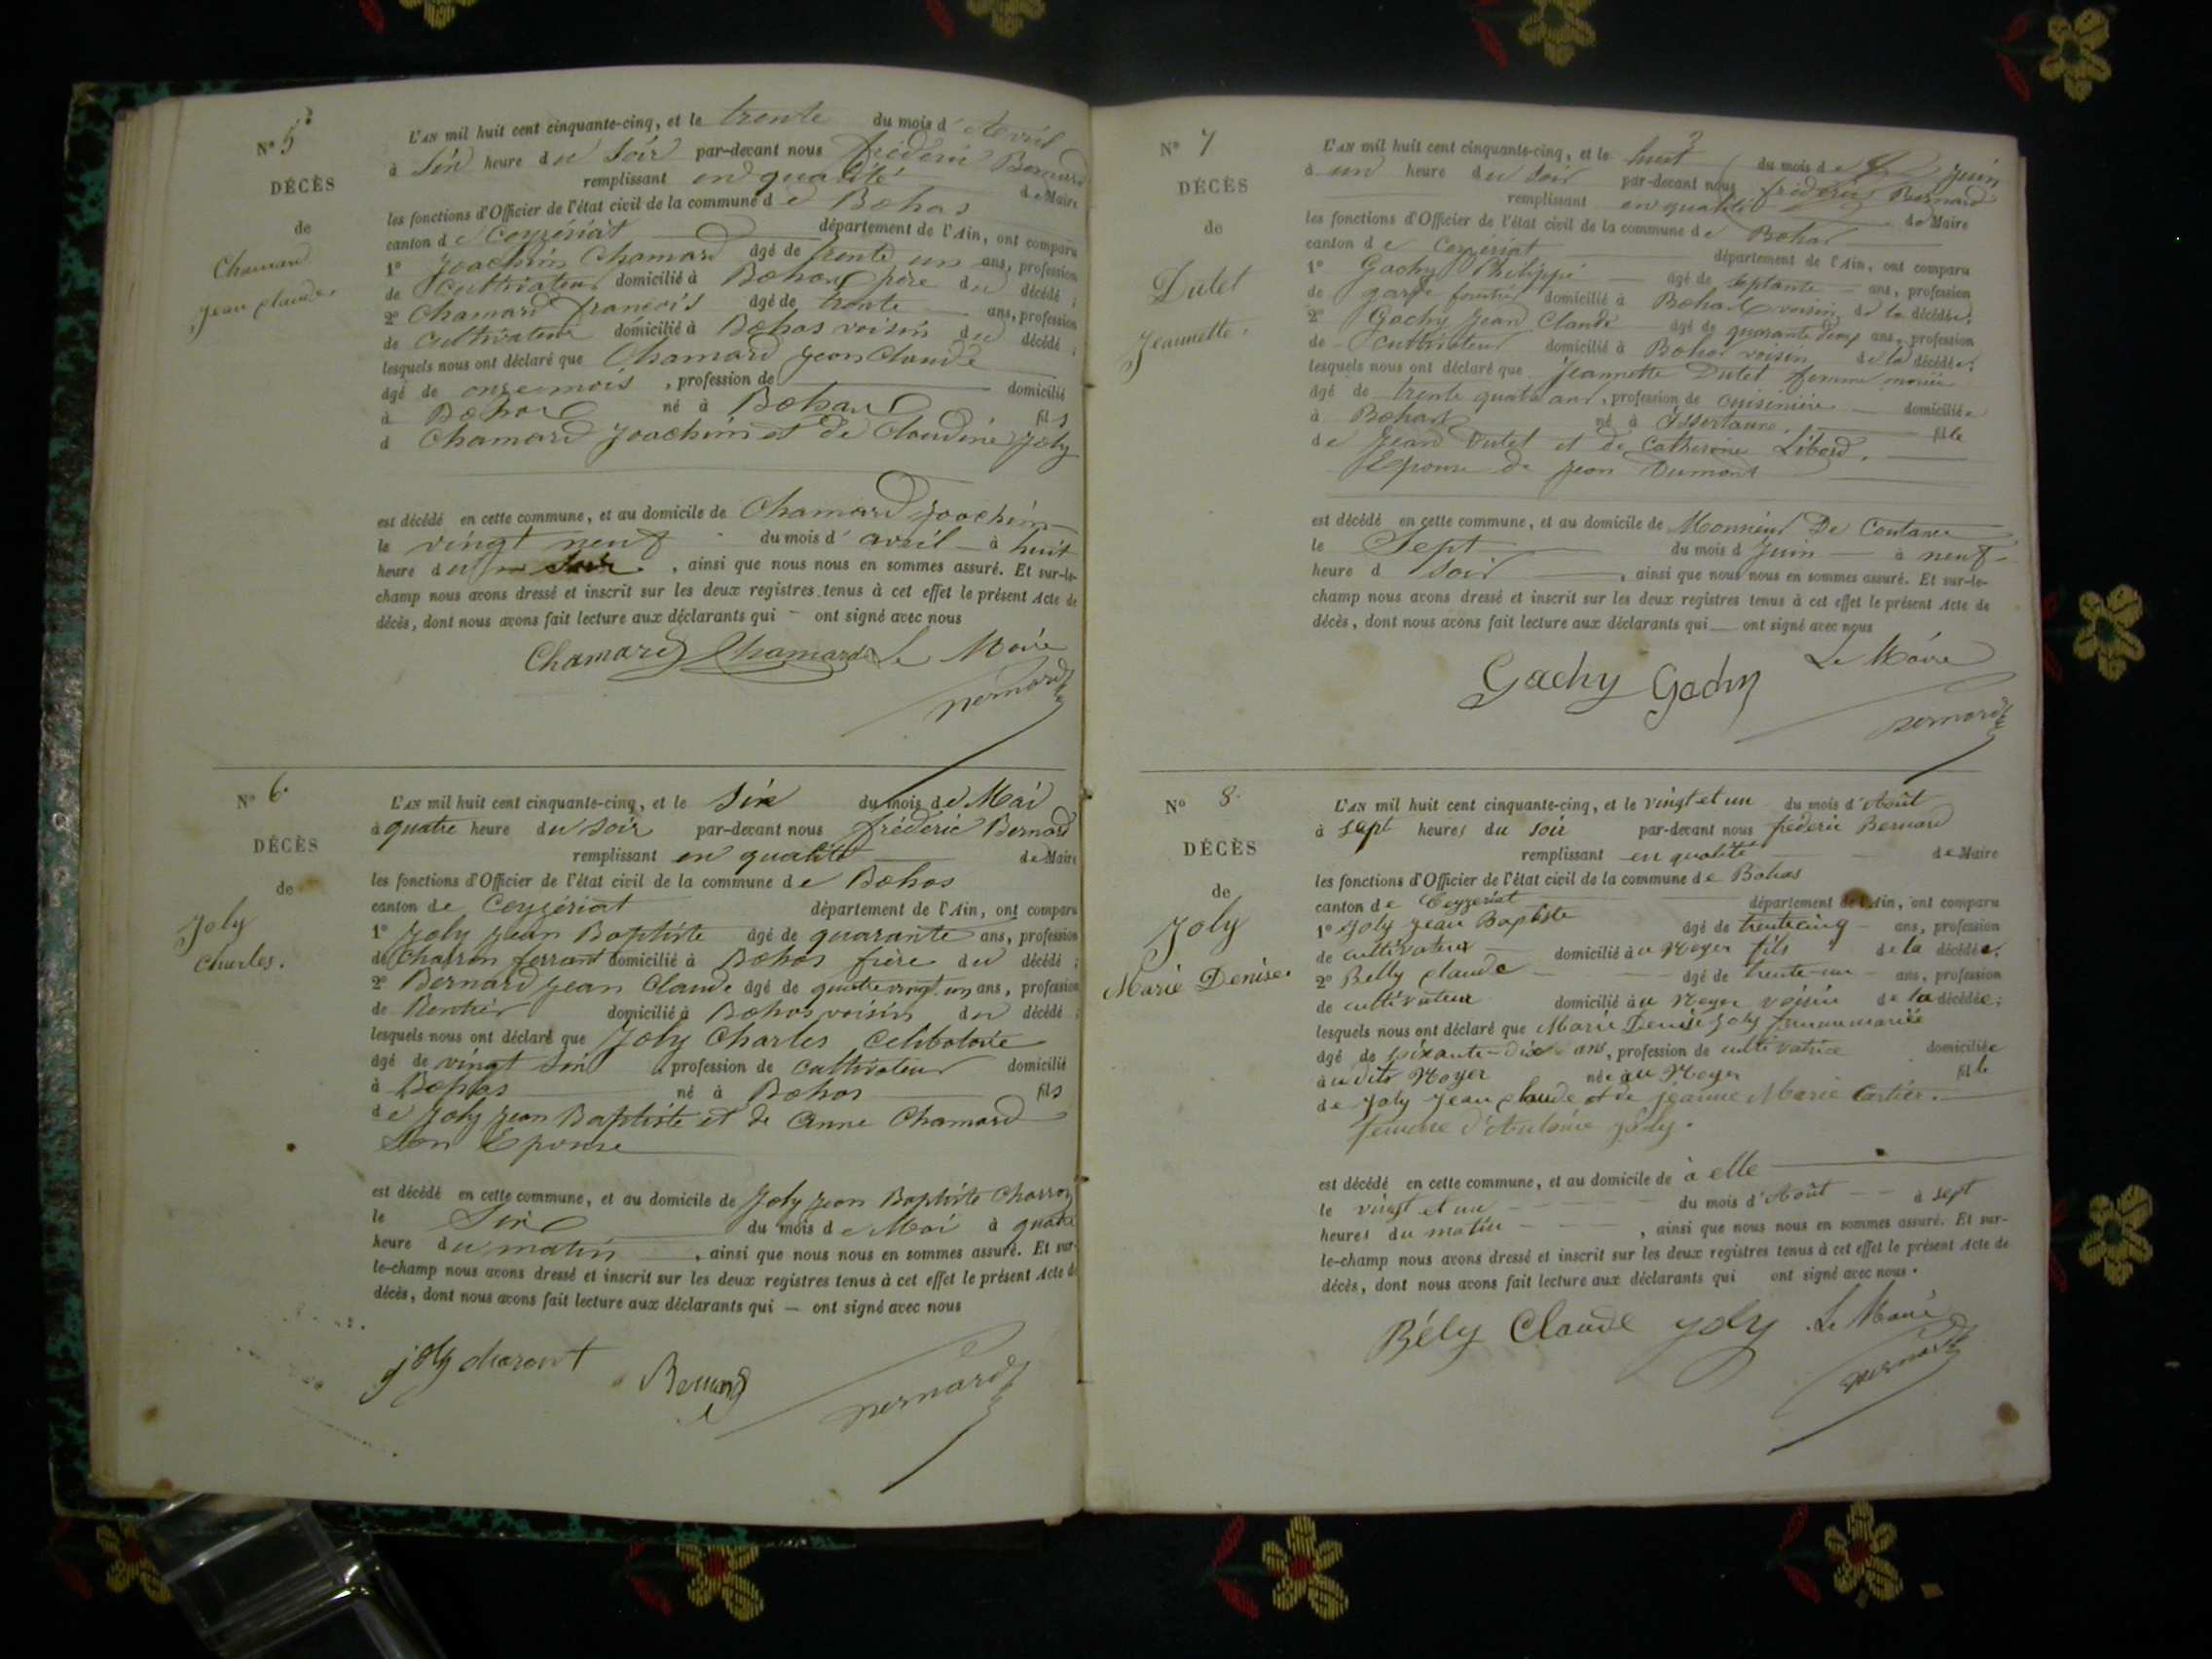 N° 5
DÉCÈS
de
Chamard
Jean Claude
L'AN mil huit cent cinquante-cinq, et le trente du mois d'Avril
à Six heure du Soir par-devant nous frédéric Bernard
remplissant en qualité de Maire
les fonctions d'Officier de l'état civil de la commune de Bohas
canton de Ceyzériat département de l'Ain, ont comparu
1° Joachim Chamard âgé de trente un ans, profession
de Cultivateur domicilié à Bohas père du décédé ;
2° Chamard françois âgé de trente ans, profession
de Cultivateur domicilié à Bohas voisin du décédé ;
lesquels nous ont déclaré que Chamard Jean Claude
âgé de onze mois , profession de domicilié
à Bohas né à Bohas fils
d Chamard Joachim et de Claudine Joly
est décédé en cette commune, et au domicile de Chamard Joachim
le vingt neuf du mois d'avril à huit
heure du soir , ainsi que nous nous en sommes assuré. Et sur-le-
champ nous avons dressé et inscrit sur les deux registres tenus à cet effet le présent Acte de
décès, dont nous avons fait lecture aux déclarants qui — ont signé avec nous
Chamard Chamard Le Maire
Bernard
N° 6
DÉCÈS
de
Joly
Charles.
L'AN mil huit cent cinquante-cinq, et le Six du mois de Mai
à quatre heure du soir par-devant nous frédéric Bernard
remplissant en qualité de Maire
les fonctions d'Officier de l'état civil de la commune de Bohas
canton de Ceyzériat département de l'Ain, ont comparu
1° Joly Jean Baptiste âgé de quarante ans, profession
de Charron ferrant domicilié à Bohas frère du décédé ;
2° Bernard Jean Claude âgé de quatre vingt un ans, profession
de Rentier domicilié à Bohas voisin du décédé ;
lesquels nous ont déclaré que Joly Charles Célibataire
âgé de vingt six profession de cultivateur domicilié
à Bohas né à Bohas fils
de Joly Jean Baptiste et de Anne Chamard
Son Epouse
est décédé en cette commune, et au domicile de Joly Jean Baptiste Charron
le Six du mois de Mai à quatre
heure du matin , ainsi que nous nous en sommes assuré. Et sur-
le-champ nous avons dressé et inscrit sur les deux registres tenus à cet effet le présent Acte de
décès, dont nous avons fait lecture aux déclarants qui — ont signé avec nous
joly charont Bernard Bernard
N° 7
DÉCÈS
de
Dutel
Jeannette.
L'AN mil huit cent cinquante-cinq, et le huit du mois de Juin
à un heure du Soir par-devant nous frédéric Bernard
remplissant en qualité de Maire
les fonctions d'Officier de l'état civil de la commune de Bohas
canton de Ceyzériat département de l'Ain, ont comparu
1° Gachy Philippe âgé de septante ans, profession
de garde forestier domicilié à Bohas voisin de la décédée ;
2° Gachy Jean Claude âgé de quarante deux ans, profession
de cultivateur domicilié à Bohas voisin de la décédée ;
lesquels nous ont déclaré que Jeannette Dutel femme mariée
âgé de trente quatre ans , profession de cuisinière domiciliée
à Bohas né à fille
de Jean Dutel et de Catherine Libard.
Epouse de Jean Dumont
est décédé en cette commune, et au domicile de Monsieur De Coutance
le Sept du mois d Juin à neuf
heure d soir , ainsi que nous nous en sommes assuré. Et sur-le-
champ nous avons dressé et inscrit sur les deux registres tenus à cet effet le présent Acte de
décès, dont nous avons fait lecture aux déclarants qui — ont signé avec nous
Gachy Gachy Le Maire
Bernard
N° 8
DÉCÈS
de
Joly
Marie Denise
L'AN mil huit cent cinquante-cinq, et le vingt et un du mois d'Août
à sept heures du soir par-devant nous frédéric Bernard
remplissant en qualité de Maire
les fonctions d'Officier de l'état civil de la commune de Bohas
canton de Ceyzeriat département de l'Ain, ont comparu
1° Joly Jean Baptiste âgé de trente cinq ans, profession
de cultivateur domicilié à u Noyer fils de la décédée,
2° Belly Claude âgé de trente-un ans, profession
de cultivateur domicilié à u Noyer voisin de la décédée ;
lesquels nous ont déclaré que Marie Denise Joly femme mariée
âgé de soixante-dix ans, profession de cultivatrice domiciliée
à u dit Noyer née à u Noyer fille
de Joly Jean Claude et de Jeanne Marie Cartier.
femme d'Antoine Joly.
est décédé en cette commune, et au domicile de à elle
le vingt et un du mois d'Août à sept
heures du matin , ainsi que nous nous en sommes assuré. Et sur-
le-champ nous avons dressé et inscrit sur les deux registres tenus à cet effet le présent Acte de
décès, dont nous avons fait lecture aux déclarants qui ont signé avec nous.
Bély Claude Joly Le Maire
Bernard